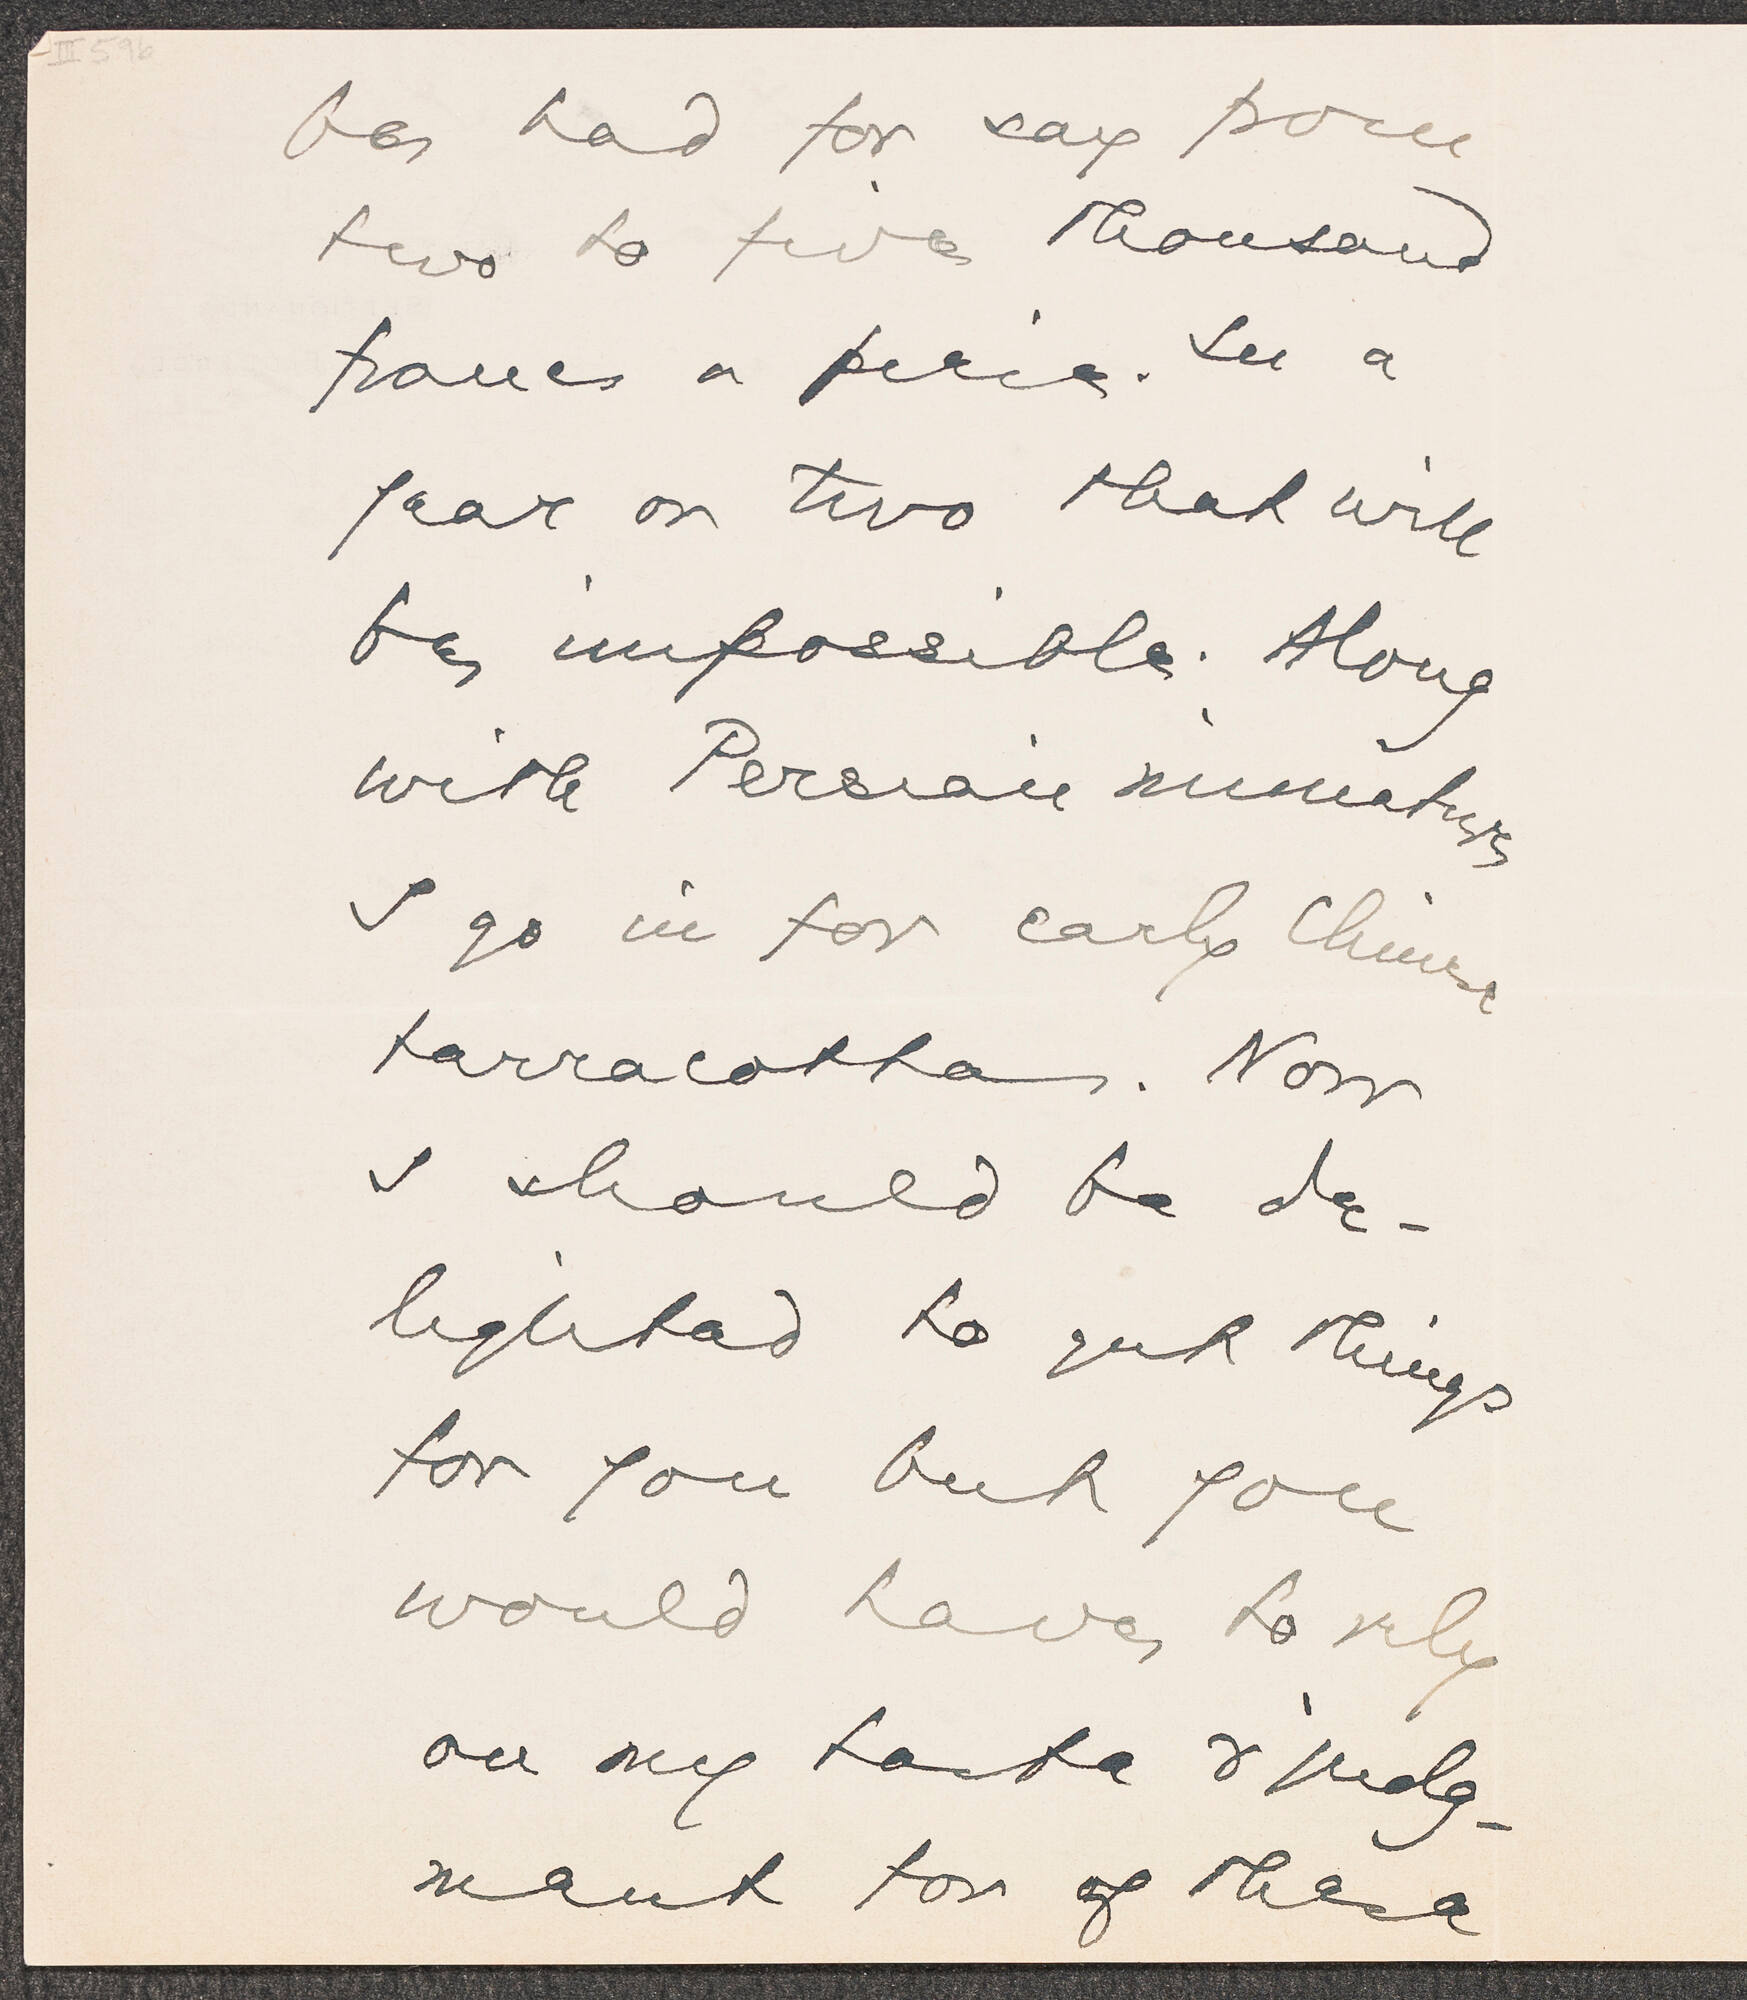 -III 596
be had for say from
two to five thousand
francs a piece. In a
year or two that will
be impossible. Along
with Persian miniatures
I go in for early Chinese
terracottas. Now
I should be de-
lighted to get things
for you but you
would have to rely
on my taste & judg-
ment for of these